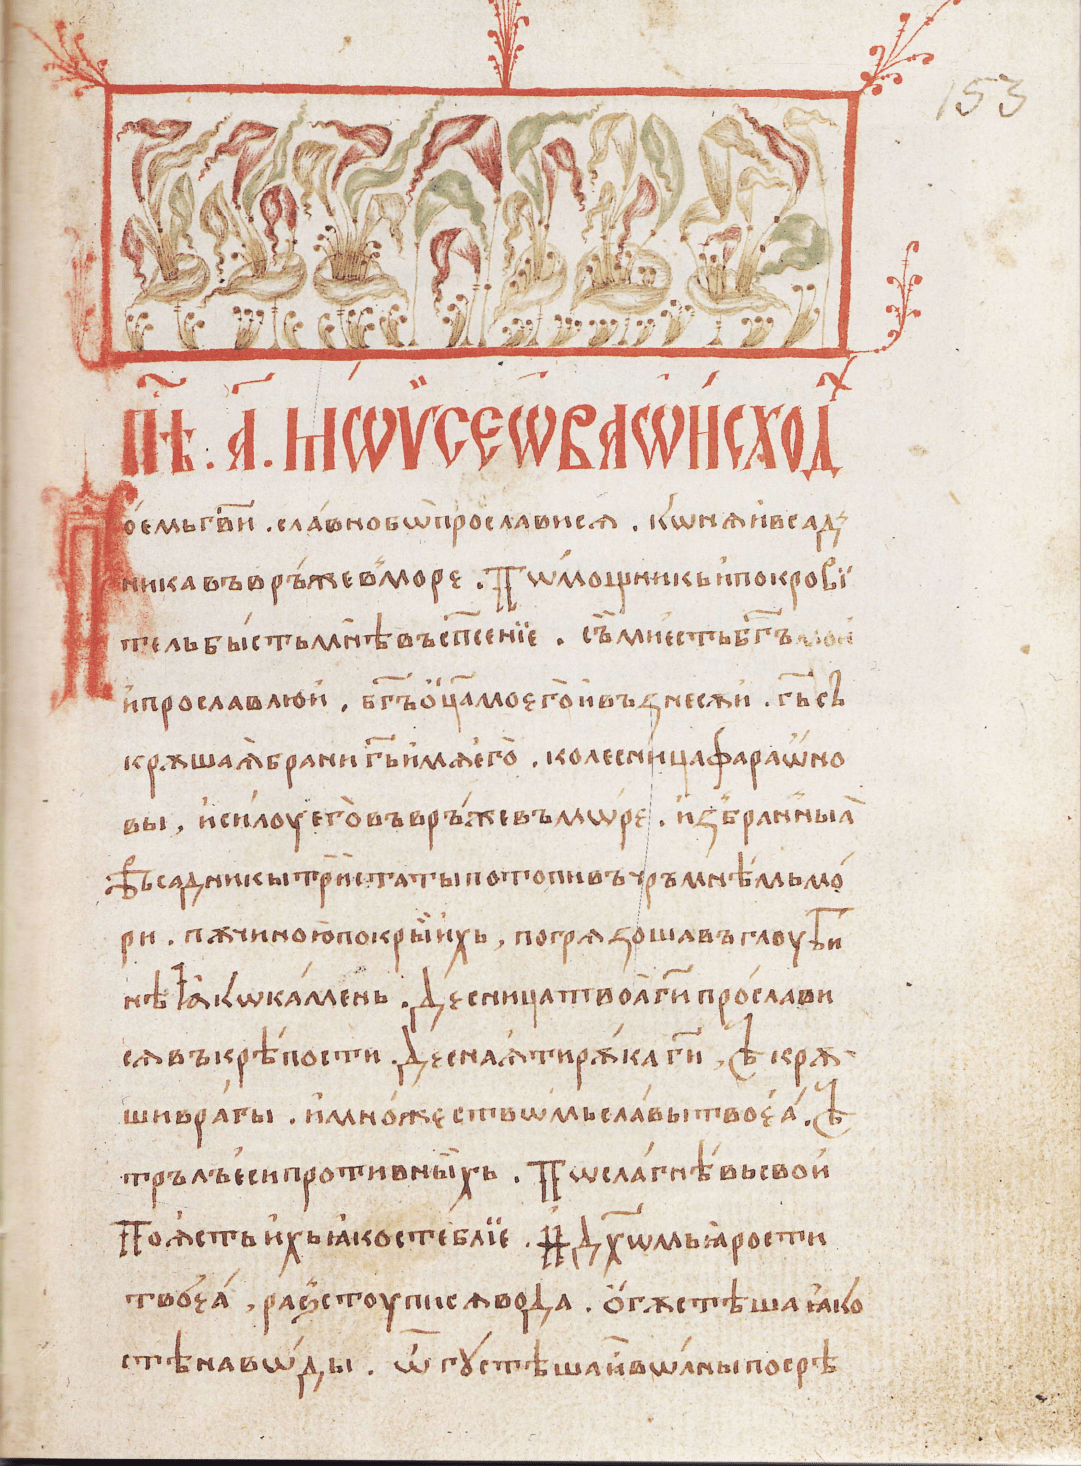 153
пѣ҃ . а҃ . мѡѵсеѡва ѡ исход
Поемь гв҃и . славно бѡ прославися . кѡня и всад
ника въврьже в море . Пѡмощникь и покрови
тель бысть мнѣ въ сп҃сение . съ ми есть бг҃ъ мои
и прославлю и , бг҃ъ оц҃а моего и възнесѫ и . гь҃ съ
крѫшаѧ брани гь҃ имѧ его . колесница фараѡно
вы , и силоу его въврьже въ мѡре . избранныѧ
въсадникы тристаты потопи въ чръмнѣмь мо
ри . пѫчиною покры ихь , погрѧзоша въ глоуби
нѣ ꙗкѡ камень . Десница твоа гн҃и прослави
сѧ въ крѣпости . Деснаѧ ти рѫка гн҃и , съкрѫ
ши врагы . и множествѡмь славы твоеа . съ
трълъ еси противныхь . Пѡсла гнѣвь свои
Поѧсть ихь ꙗко стеблие . И дх҃ѡмь ꙗрости
твоеа , разстоупися вода . огѫстѣша ꙗко
стѣна вѡды . ѿгꙋстѣша и вѡлны посрѣ